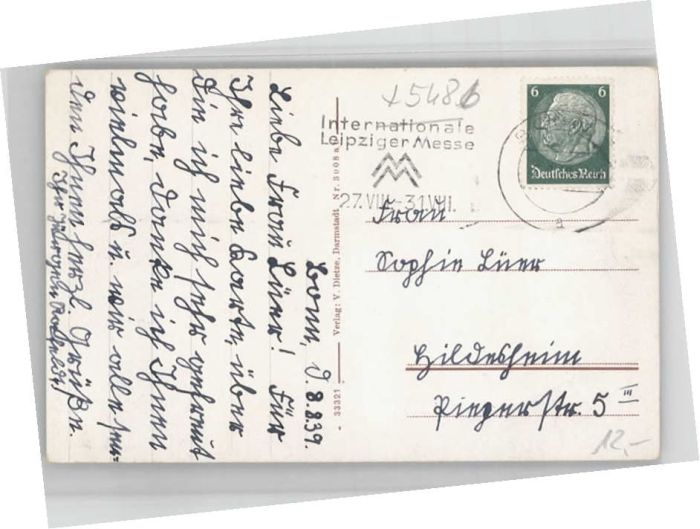 Bonn, d. 8.8.39.
Liebe Frau Lüer! Für
Ihre liebe Karte, über
die ich mich sehr gefreut
habe, danke ich Ihnen
vielmals u. wir alle sen-
den Ihnen herzl. Grüße.
Ihre
33321 Verlag: V. Dietze, Darmstadt. Nr.
+5486
Internationale
Leipziger Messe
MM
27.VIII.-31.VIII.
6 6
Deutsches Reich
a
Frau
Sophie Lüer
Hildesheim
str. 5 III
12,-